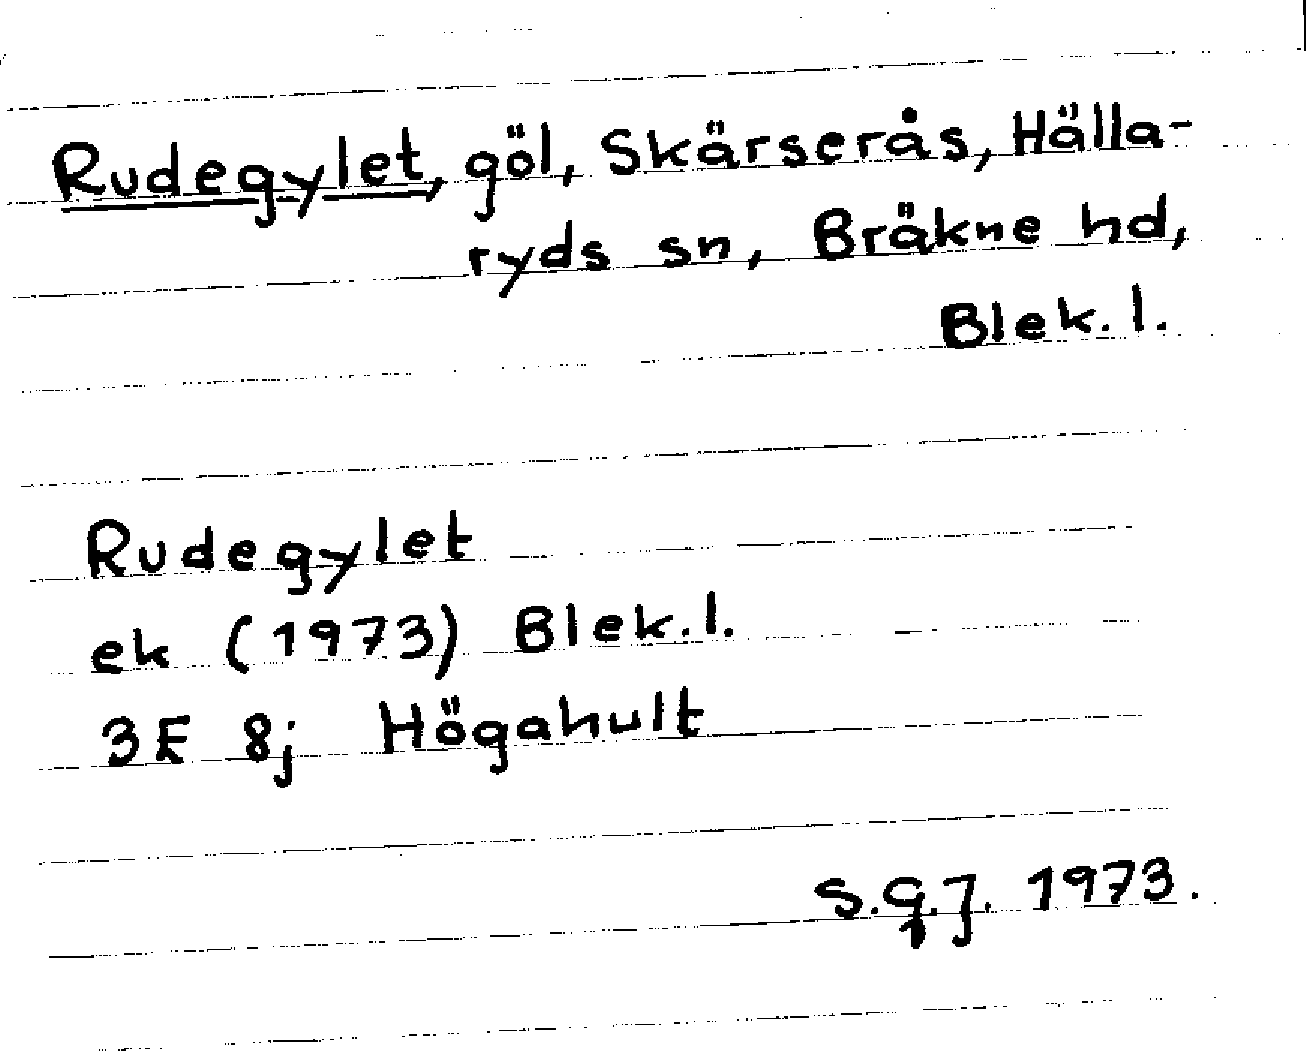 Rudegylet, göl, Skärserås, Hälla-
ryds sn, Bräkne hd,
Blek. l.
Rudegylet
ek (1973) Blek. l.
3E 8j Högahult
S.G.J. 1973.